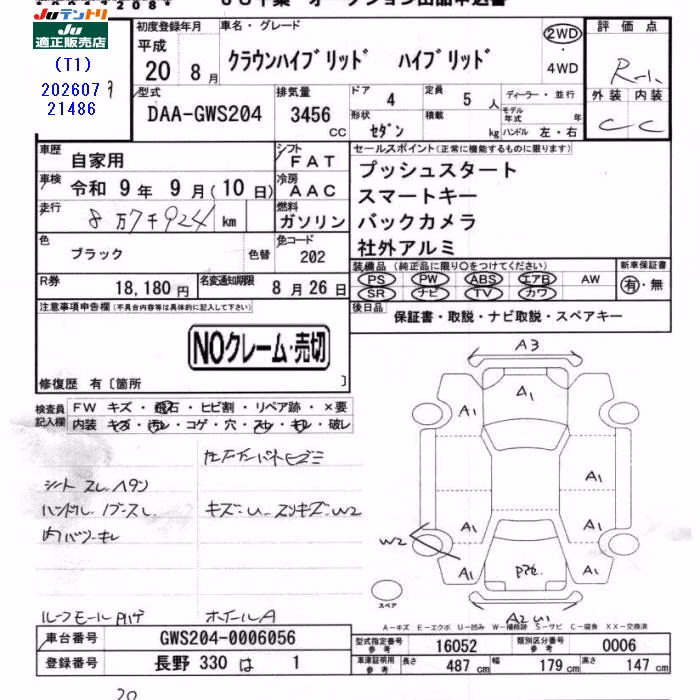 JU テントリ
JU 適正販売店
(T1)
202607
21486
初度登録年月
平成
20 8月
車名・グレード
クラウンハイブリッド ハイブリッド
2WD
・
4WD
評価点
R-1
外装 内装
C C
型式
DAA-GWS204
排気量
3456
CC
ドア
4
定員
5 人
ディーラー・並行
モデル年式 年
形状
セダン
積載
kg
ハンドル 左・右
車歴
自家用
シフト
FAT
車検
令和 9年 9月(10日)
冷房
AAC
走行
8万7千924 km
燃料
ガソリン
色
ブラック
色替
色コード
202
R券
18,180円
名変通知期限
8月26日
セールスポイント(正常に機能するものに限ります)
プッシュスタート
スマートキー
バックカメラ
社外アルミ
装備品 (純正品に限り○をつけてください)
PS PW ABS エアB AW
SR ナビ TV カワ
新車保証書
有・無
後日品
保証書・取説・ナビ取説・スペアキー
注意事項申告欄(不具合内容等は具体的に記入して下さい)
NOクレーム・売切
修復歴 有〔箇所 〕
検査員記入欄
FW キズ・飛石・ヒビ割・リペア跡・×要
内装 キズ・汚レ・コゲ・穴・スレ・キレ・破レ
シート スレ ヘタリ
ハンドル
キズ=U
W2
ルーフモール
ホイールA
A3
A1
A1
A1
A1
A1
A1
A1
W2
A2 U1
スペア
A－キズ E－エクボ U－凹み W－補修跡 S－サビ C－腐食 XX－交換済
車台番号
GWS204-0006056
登録番号
長野 330 は 1
型式指定番号 参考
16052
類別区分番号 参考
0006
車庫証明用 参考
長さ 487 cm 幅 179 cm 高さ 147 cm
20